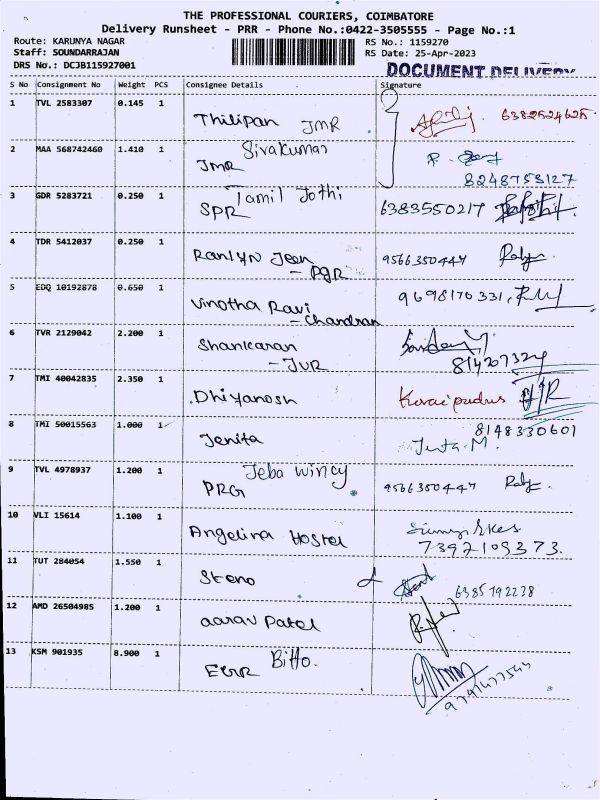 THE PROFESSIONAL COURIERS, COIMBATORE
Delivery Runsheet - PRR - Phone No.:0422-3505555 - Page No.:1
Route: KARUNYA NAGAR
Staff: SOUNDARRAJAN
DRS No.: DCJB115927001
RS No.: 1159270
RS Date: 25-Apr-2023
DOCUMENT DELIVERY
S No Consignment No Weight PCS Consignee Details Signature
1 TVL 2583307 0.145 1 Thilipan JMR 6382624625
2 MAA 568742460 1.410 1 Sivakumar
JMR 8248753127
3 GDR 5283721 0.250 1 Tamil Jothi
SPR 6383550217
4 TDR 5412037 0.250 1 Ranlyn Jeen 9566350447
- PGR
5 EDQ 10192878 0.650 1 Vinotha Ravi 9698170331,
- Chandran
6 TVR 2129042 2.200 1 Shankaran
- JVR 814207324
7 TMI 40042835 2.350 1 Dhiyanosh
8 TMI 50015563 1.000 1 Jenita 8148330601
9 TVL 4978937 1.200 1 Jeba Wincy
PRG 9566350447
10 VLI 15614 1.100 1 Angelina Hostel
7392109373.
11 TUT 284054 1.550 1 Steno 6385792238
12 AMD 26504985 1.200 1 aarav Patel
13 KSM 901935 8.900 1 Bitto.